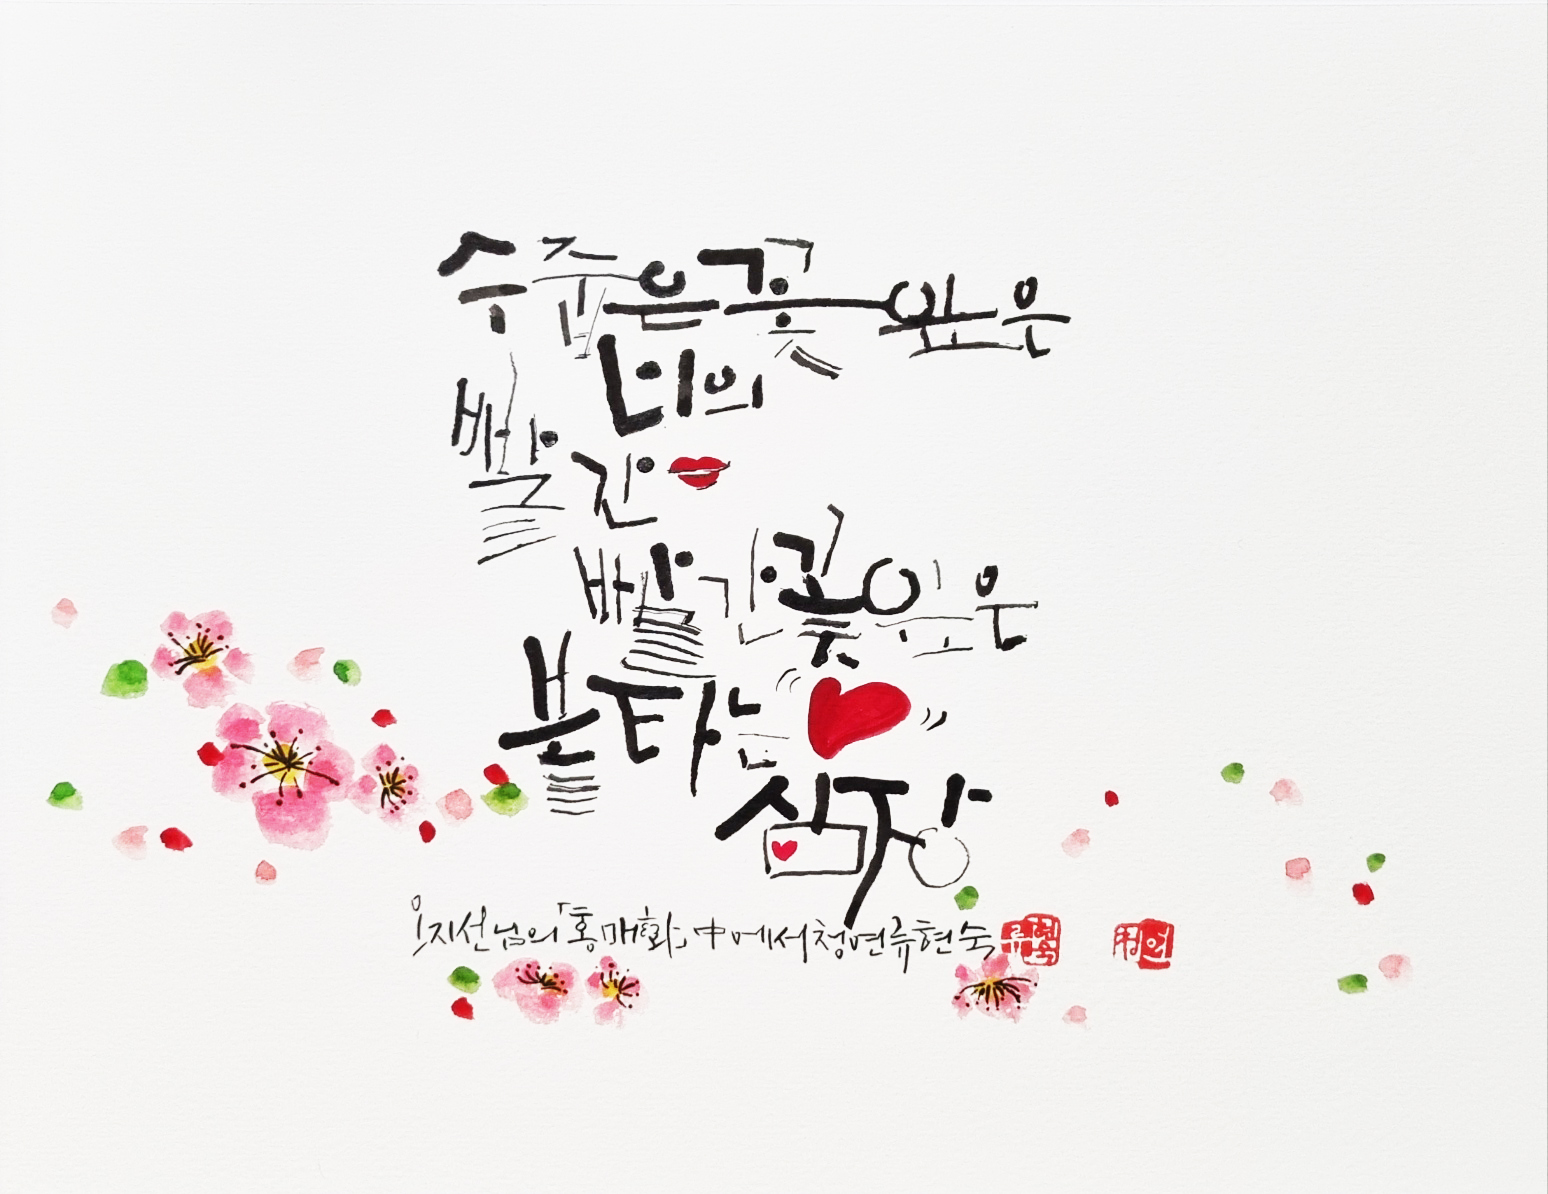 수줍은 꽃잎은
너의
빨간
빨간 꽃잎은
불타는
심장
오지선님의 「홍매화」 中에서 청연 류현숙
류현숙